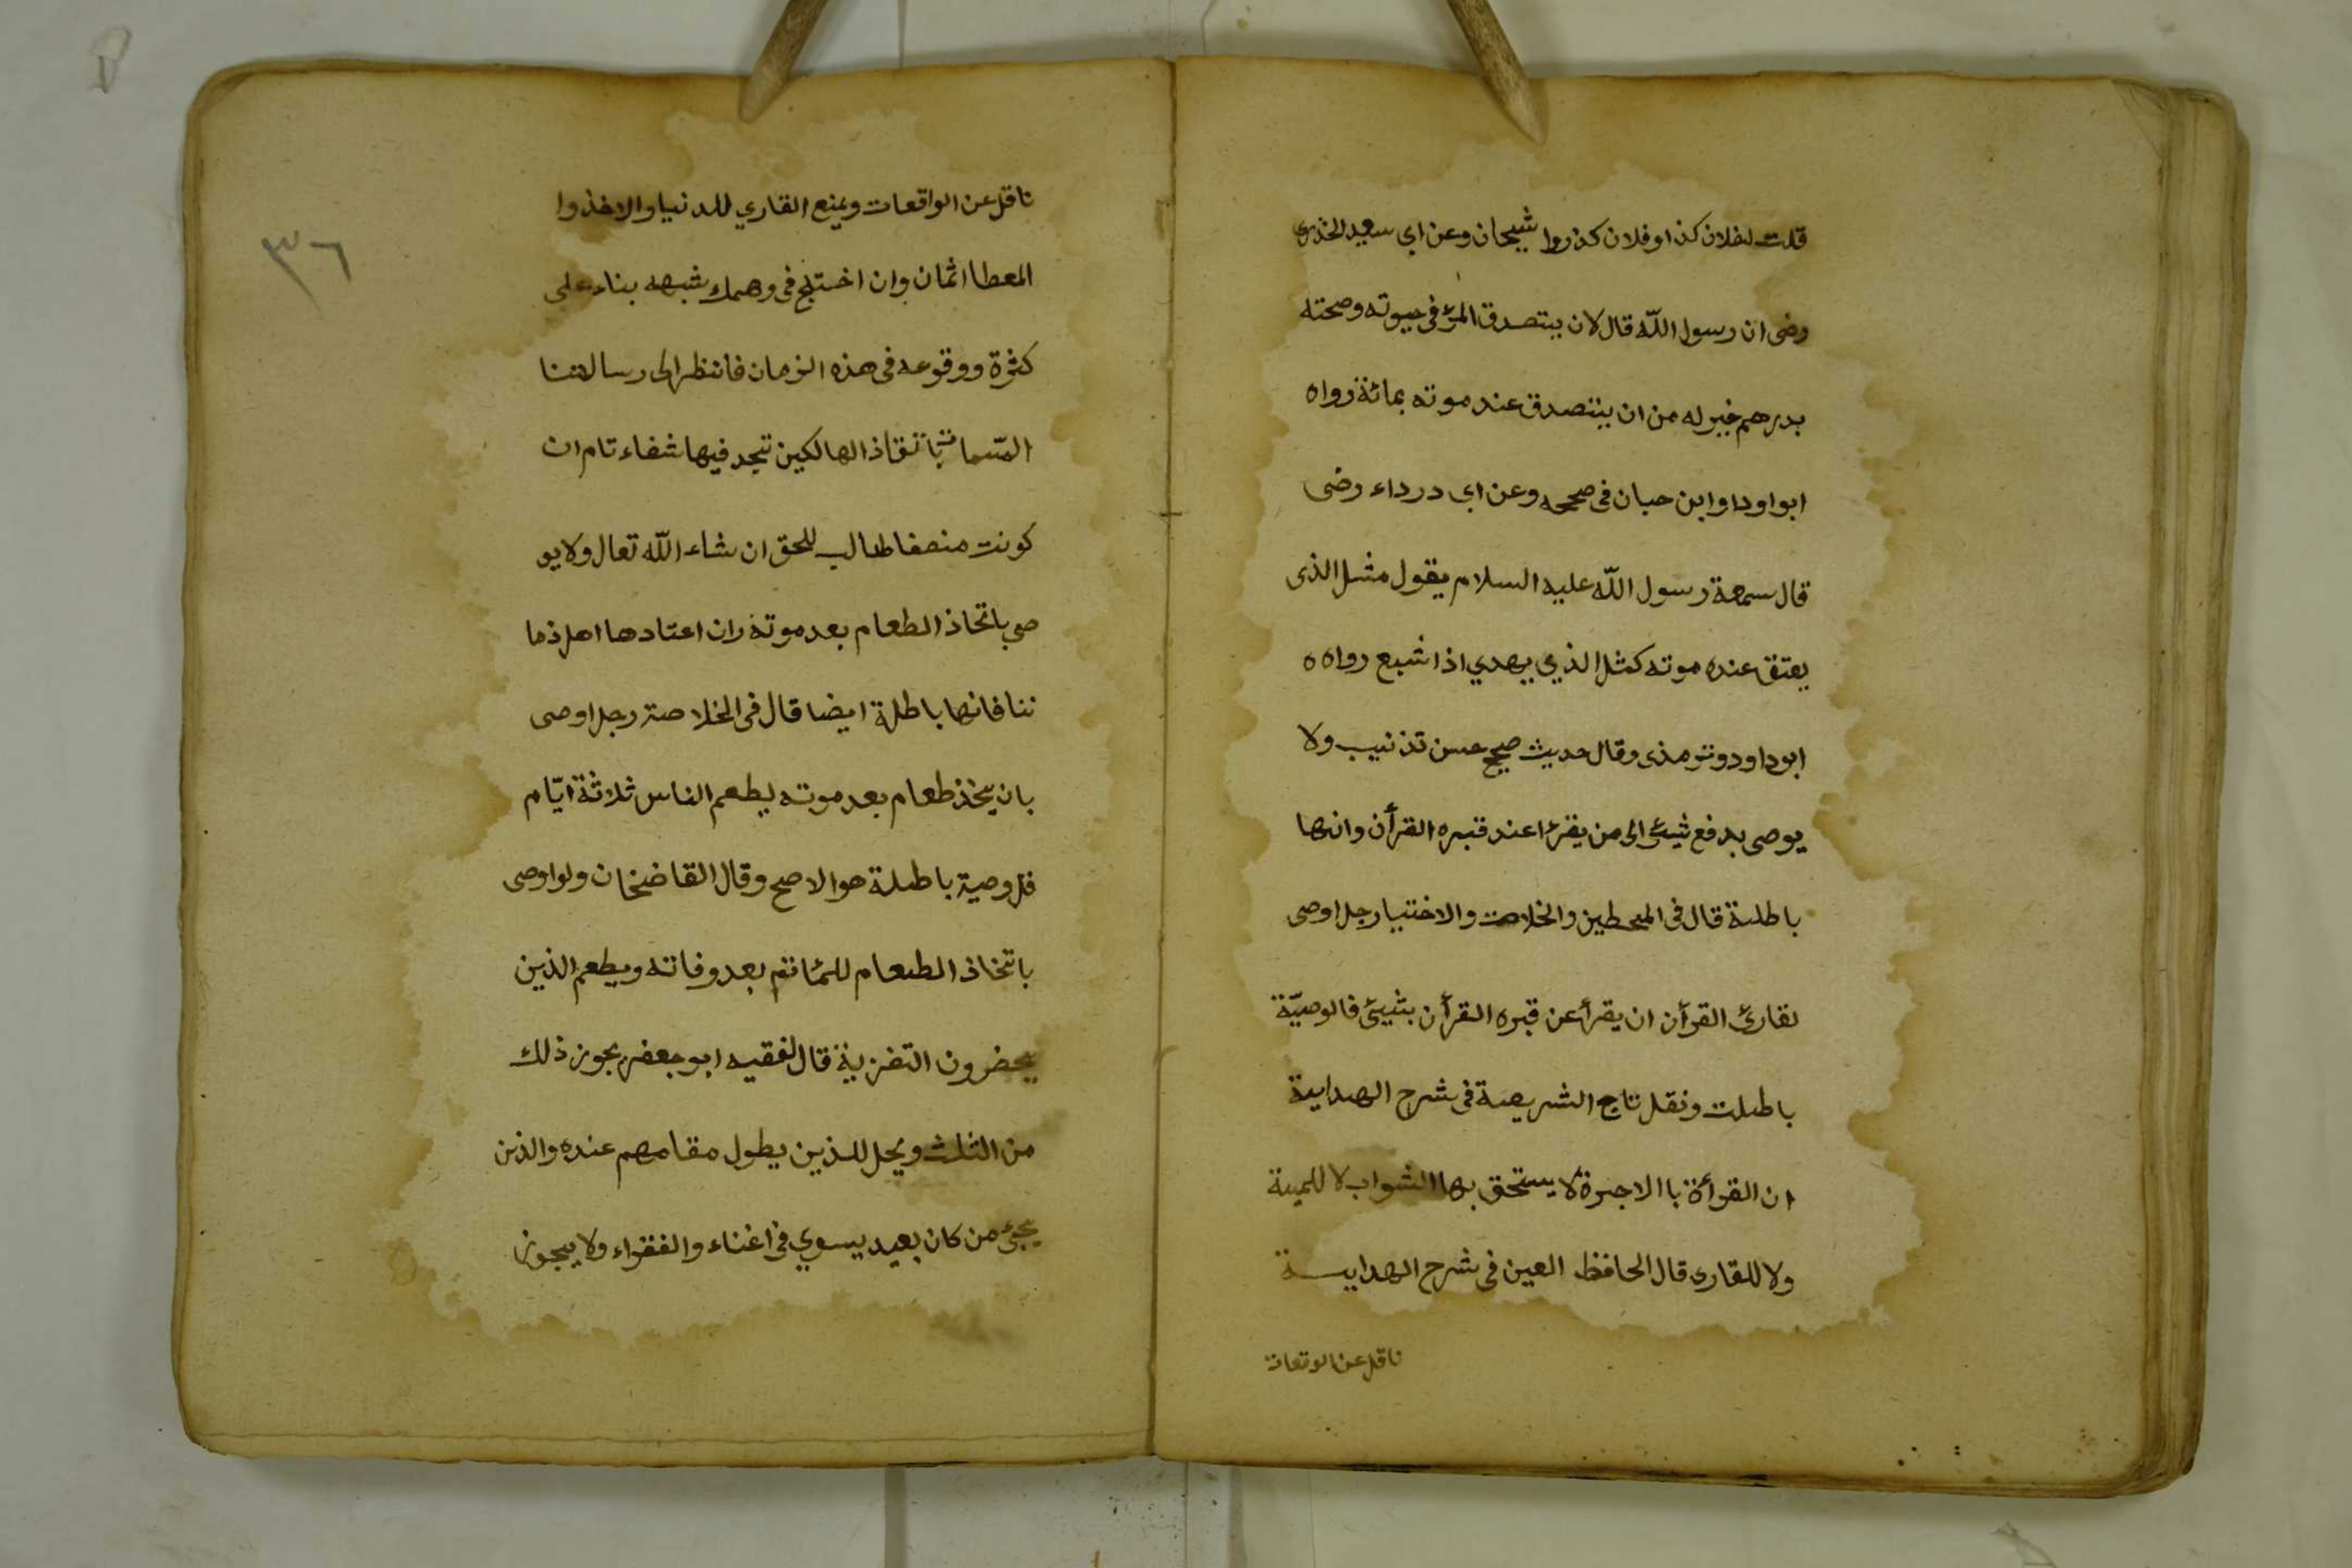 قلت لفلان كذا وفلان كذ روا شيحان وعن ابي سعيد الخذري
رضى ان رسول اللّه قال لان يتصدق المرئ في حيوته وصحته
بدرهم خير له من ان يتصدق عند موته بمائة رواه
ابواودا وابن حبان في صححه وعن ابى درداء رضى
قال سمعة رسول اللّه عليه السلام يقول مثل الذى
يعتق عنده موته كمثل الذي يهدي اذا شبع رواه ه
ابوداود وترمذى وقال حديث صحيح حسن تذنيب ولا
يوصى بدفع شيئ الى من يقرء اعند قبره القرأن وانها
باطلة قال في المحطين والخلاصت والاختيار رجل اوصى
لقارئ القرأن ان يقرأ عن قبره القرأن بشيئ فالوصيّة
باطلت ونقل تاج الشريعة في شرح الهداية
ان القرأة باالاجرة لا يستحق بها الثواب لا للمية
ولا للقارى قال الحافظ العين في شرح الهداية
ناقل عن الوقعات
٣٦
ناقل عن الواقعات ويمنع القاري للدنيا والاخذ وا
المعطا اثمان وان اختلج في وهمك شبهه بناء على
كثرة ووقوعه في هذه الزمان فانظر الى رسالتنا
المسّما تبا نقاذ الهالكين تجد فيها شفاء تام ان
كونت منصفا طالب للحق ان شاء اللّه تعال ولا يو
صى باتخاذ الطعام بعد موته وان اعتادها اهل ذما
ننا فانها باطلة ايضا قال في الخلاصة رجل اوصى
بان يخذ طعام بعد موته ليطعم الناس ثلاثة ايّام
فل وصية باطلة هو الاصح وقال القاضخان ولو اوصى
باتخاذ الطعام للمئاتم بعد وفاته ويطعم الذين
يحضرون التغزية قال لفقيه ابو جعفر يجوز ذلك
من الثلث ويحل للذين يطول مقامهم عنده والذين
يجئ من كان بعيد يسوي في اغناء والفقراء ولا يجوز